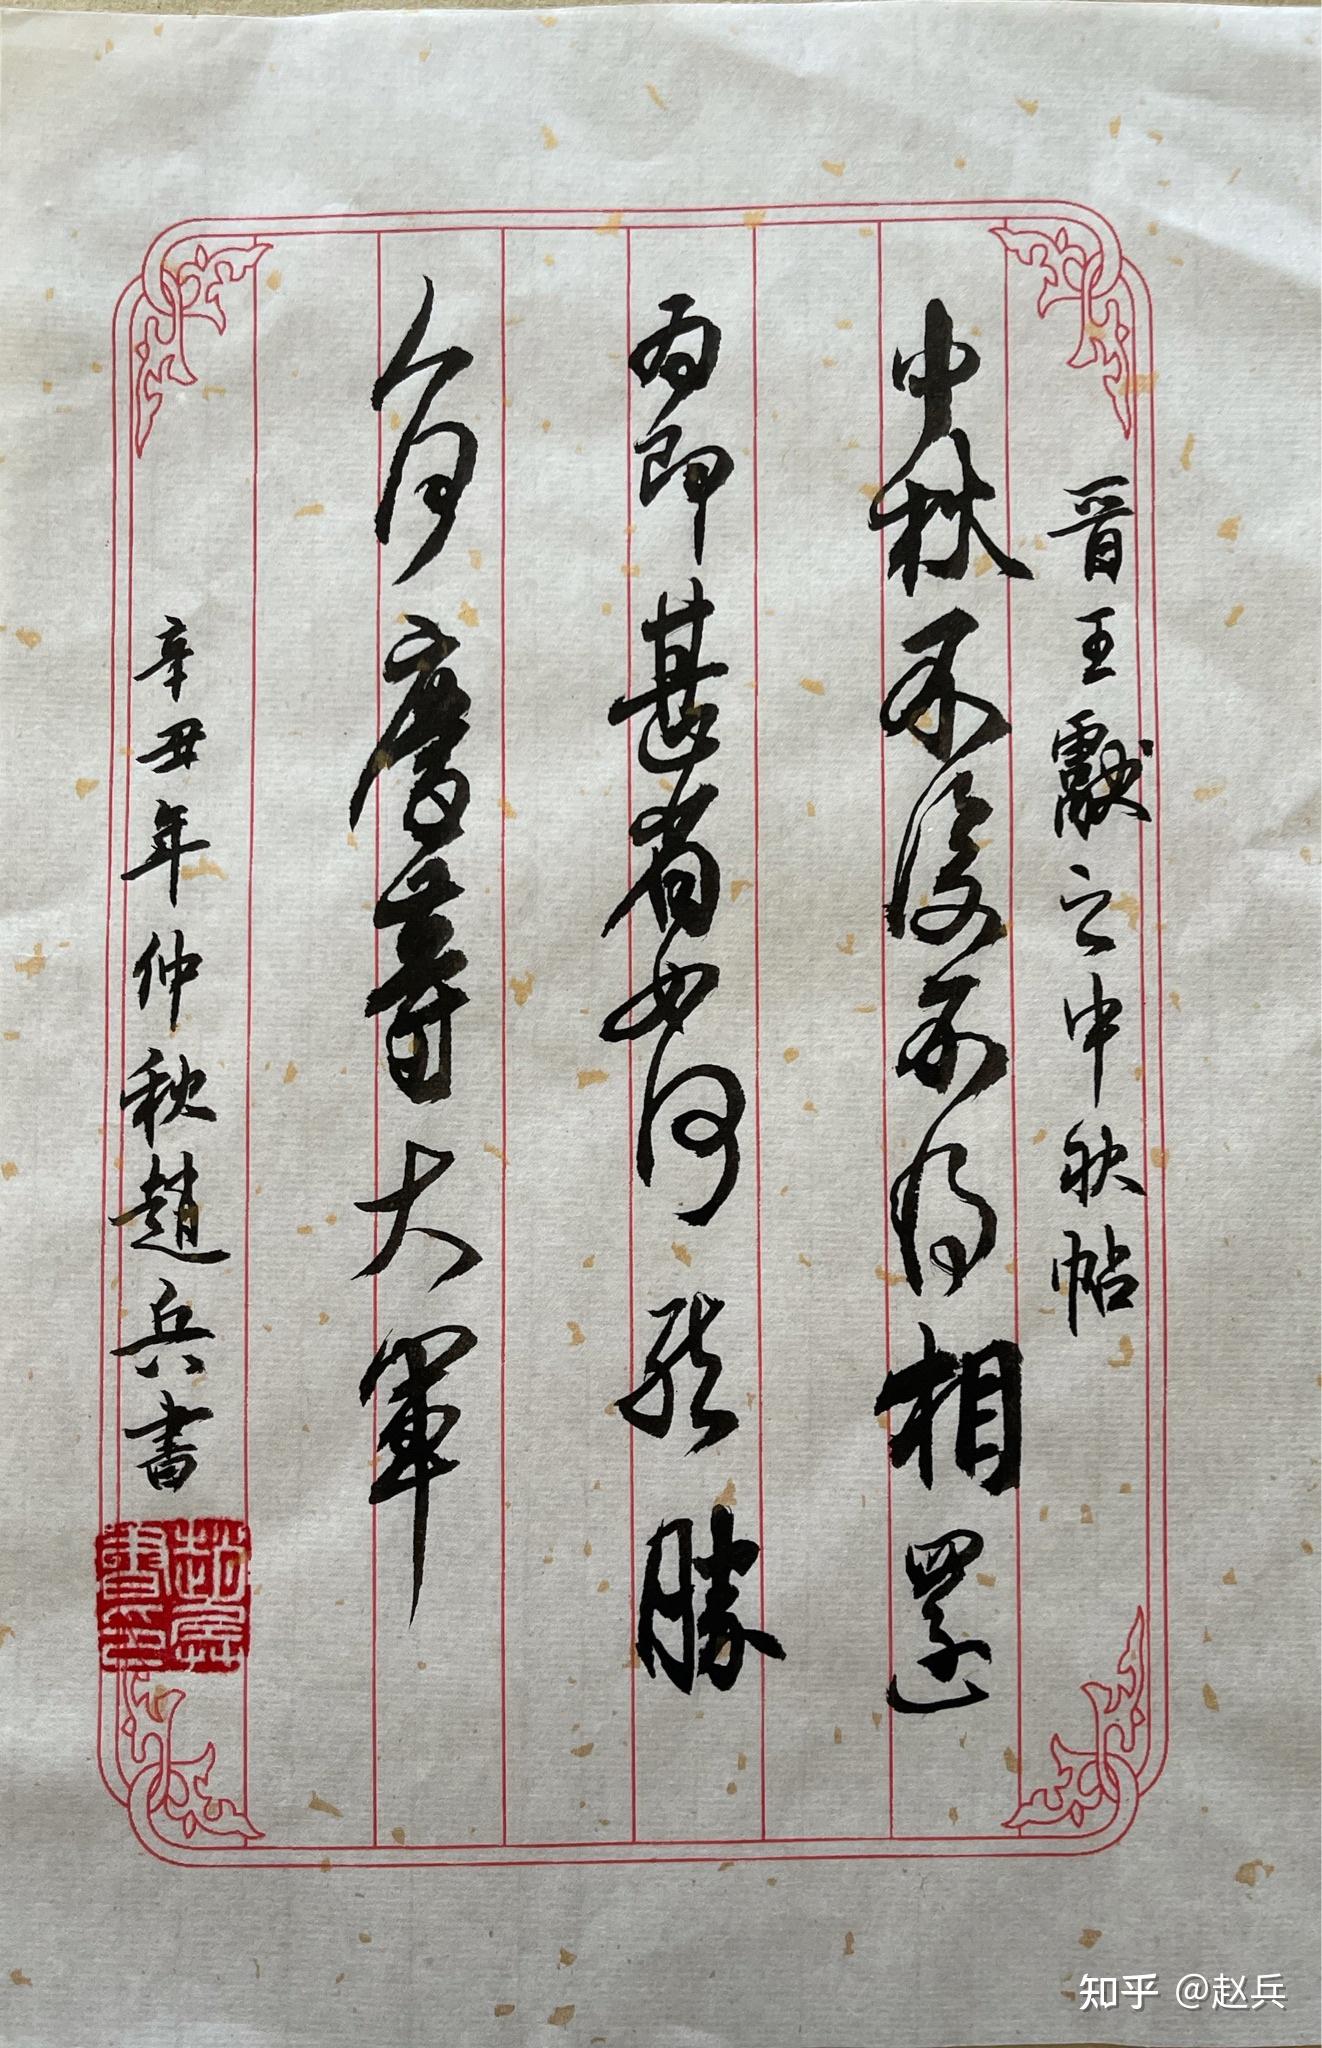 晋王獻之中秋帖
中秋不復不得相還
為即甚省如何然勝
人何慶等大軍
辛丑年仲秋趙兵書
趙兵書印
知乎 @赵兵